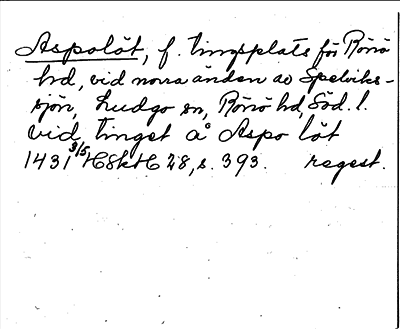 Aspolöt, f. tingsplats för Rönö
hd, vid norra änden av Spelviks-
sjön, Ludgo sn, Rönö hd, Söd. l.
vid tinget å Aspo löt
1431 3/5 HSH 28, s. 393. regest.